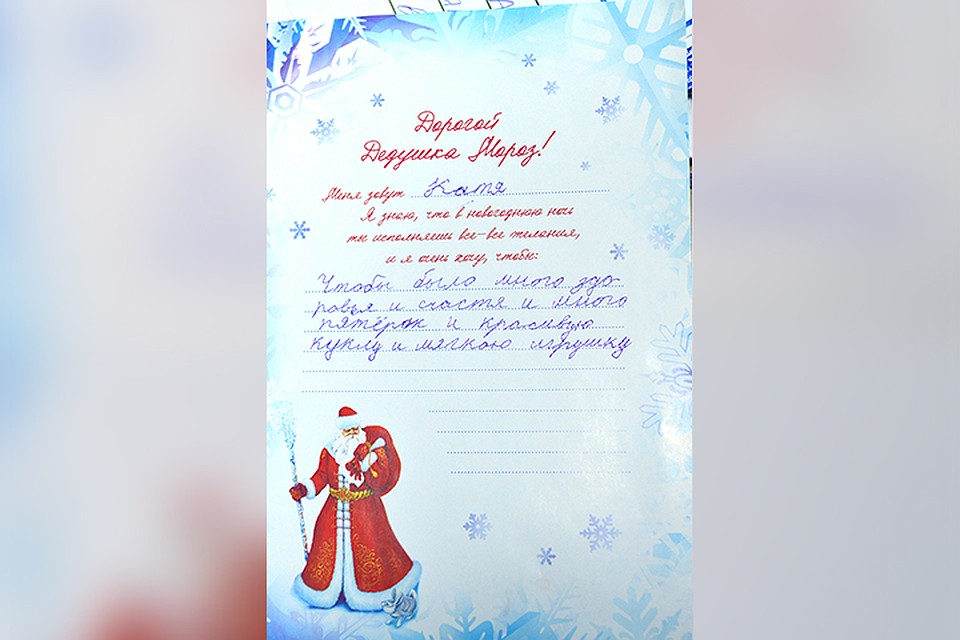 Дорогой
Дедушка Мороз!
Меня зовут Катя
Я знаю, что в новогоднюю ночь
ты исполняешь все-все желания,
и я очень хочу, чтобы:
Чтобы было много здо-
ровья и счастя и много
пятёрок и красивую
куклу и мягкою игрушку